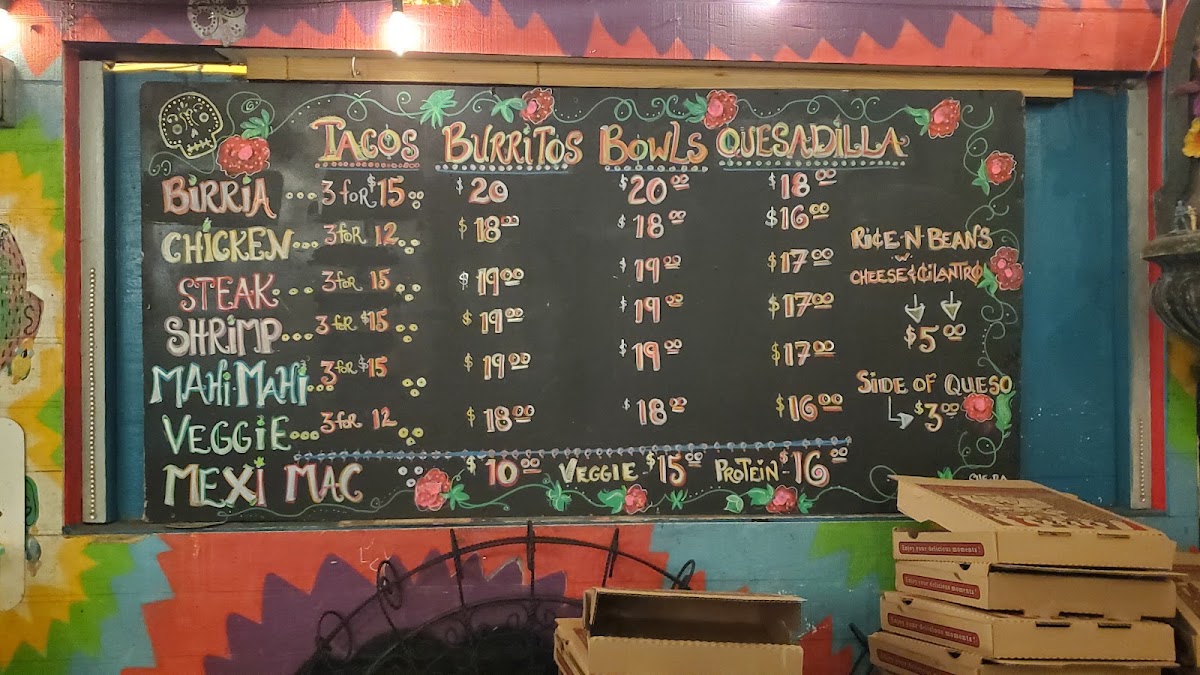 TACOS BURRITOS BOWLS QUESADILLA
BIRRIA 3 for $15 $20 $20.00 $18.00
CHICKEN 3 FOR 12 $18.00 $18.00 $16.00
STEAK 3 for 15 $19.00 $19.00 $17.00
SHRIMP 3 for $15 $19.00 $19.00 $17.00
MAHI MAHI 3 for $15 $19.00 $19.00 $17.00
VEGGIE 3 for 12 $18.00 $18.00 $16.00
MEXI MAC $10.00 VEGGIE - $15.00 PROTEIN - $16.00
RICE N BEANS
W
CHEESE & CILANTRO
$5.00
SIDE OF QUESO
$3.00
Enjoy your delicious moments!
Enjoy your delicious moments!
Enjoy your delicious moments!
Enjoy your delicious moments!